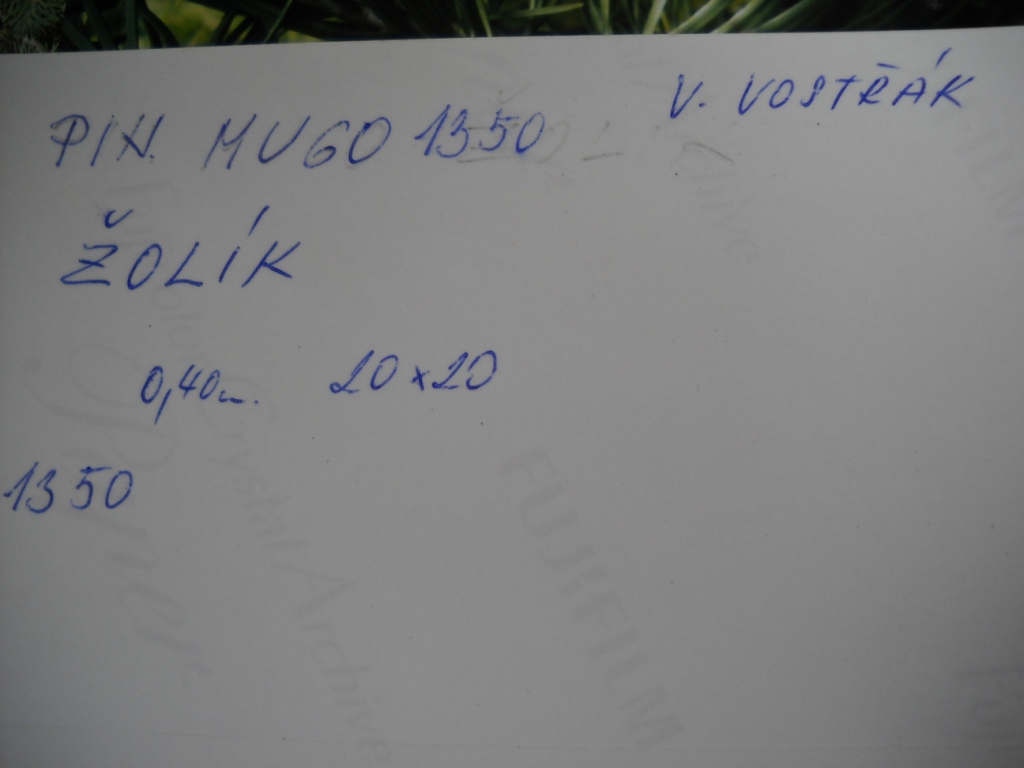 V. VOSTŘÁK
PIN. MUGO 1350
ŽOLÍK
0,40m. 20 x 20
1350
Crystal Archive
FUJIFILM